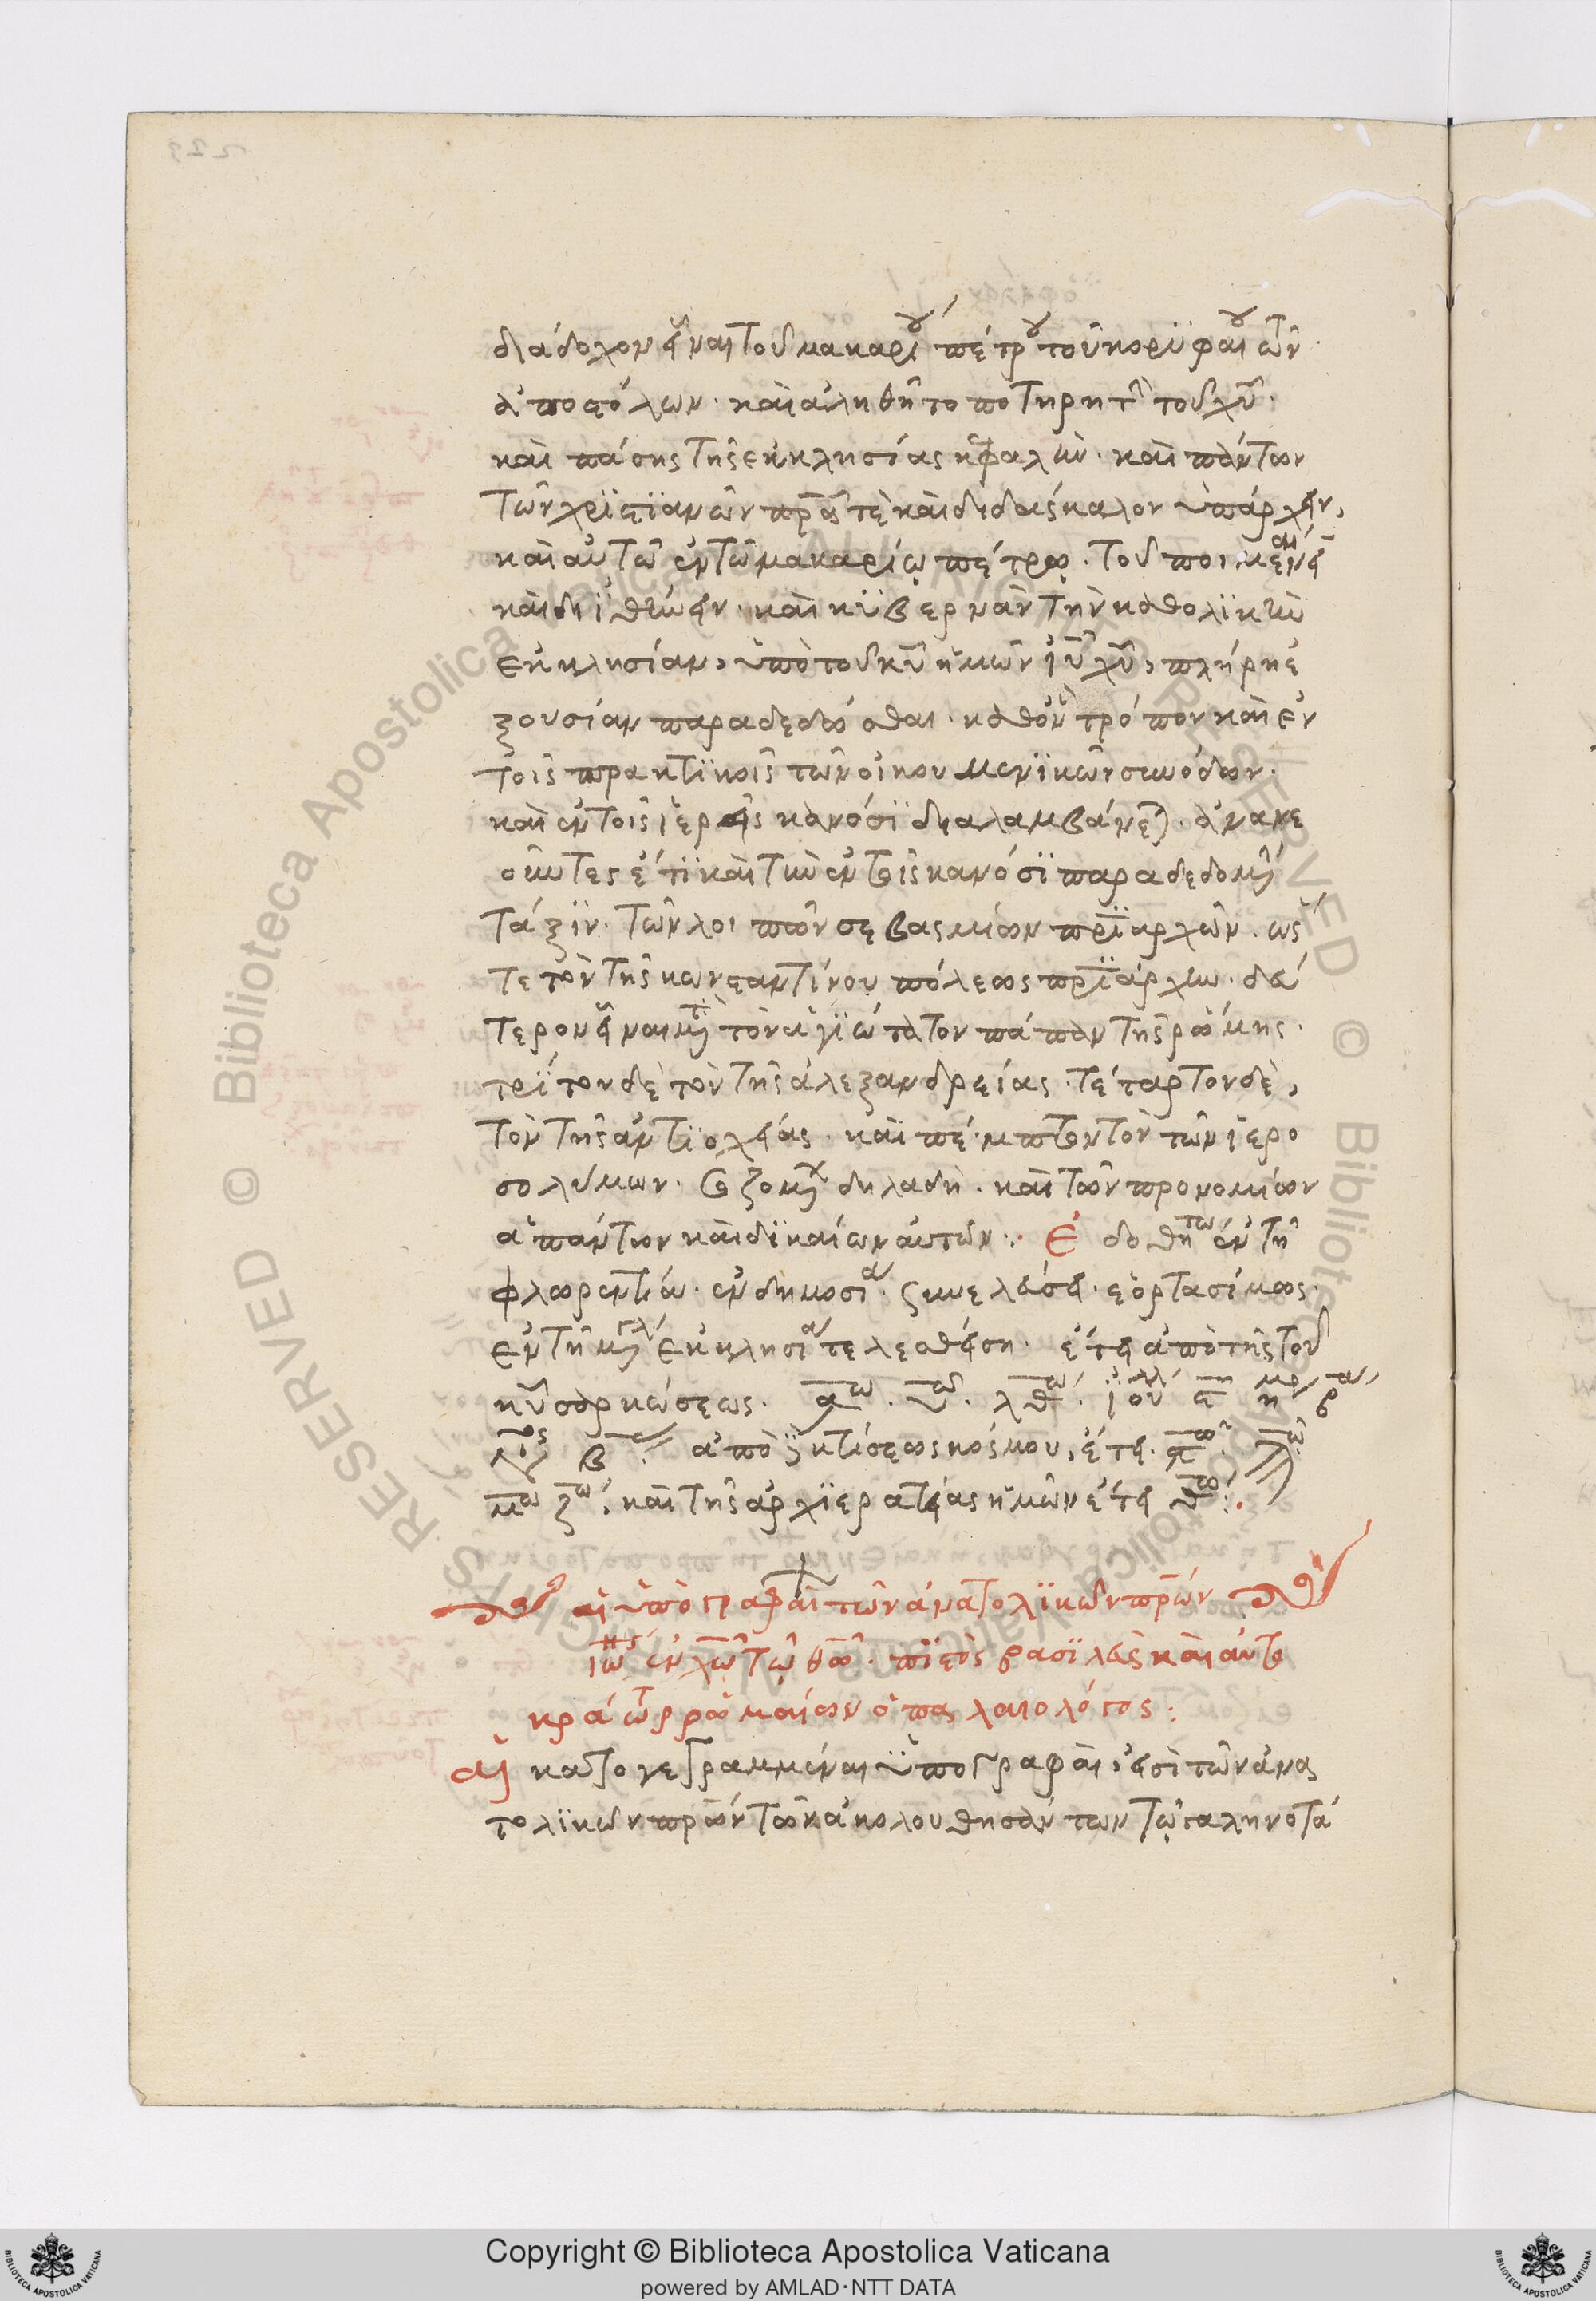 διάδοχον εἶναι τοῦ μακαρίου πέτρου τοῦ κορϋφαίου τῶν
ἀποστόλων· καὶ ἀληθῆ τοποτηρητὴν τοῦ χῦ·
καὶ πάσης τῆς ἐκκλησίας κεφαλὴν· καὶ πάντων
τῶν χρϊστϊανῶν πρᾶ τὲ καὶ διδάσκαλον ὑπάρχειν,
καὶ αὐτῶ ἐν τῶ μακαρίῳ πέτρῳ· τοῦ ποιμαίνειν
καὶ διϊθύνειν· καὶ κϋβερνᾶν τὴν καθολϊκὴν
ἐκκλησίαν, ὑπὸ τοῦ κῦ ἡμῶν ἰῦ χῦ, πλήρη ἐ
ξουσίαν παραδεδόσθαι· καθ' ὃν τρόπον καὶ ἐν
τοῖς πρακτϊκοῖς τῶν οἰκουμενϊκῶν συνόδων·
καὶ ἐν τοῖς ἱεροῖς κανόσϊ διαλαμβάνεται· ἀνανε
οῦντες ἔτϊ καὶ τὴν ἐν τοῖς κανόσϊ παραδεδομένην
τάξϊν· τῶν λοιπῶν σεβασμίων πρϊαρχῶν· ὥσ
τε τὸν τῆς κωνσταντίνου πόλεως πρϊάρχην· δεύ
τερον εἶναι μετὰ τὸν ἁγϊώτατον πάπαν τῆς ῥώμης·
τρίτον δὲ τὸν τῆς ἀλεξανδρείας· τέταρτον δὲ,
τὸν τῆς ἀντϊοχείας· καὶ πέμπτον τὸν τῶν ἱερο
σολύμων· σωζομένων δηλαδὴ· καὶ τῶν προνομίων
ἁπάντων καὶ δϊκαίων αὐτῶν:· Ἐδόθη τῶ ἐν τῆ
φλωρεντία· ἐν δημοσία· συνελεύσει· ἑορτασίμως·
ἐν τῆ μεγάλη ἐκκλησία τελεσθείση· ἔτει ἀπὸ τῆς τοῦ
κῦ σαρκώσεως· α^ω· υ^ω· λθ^ω· ϊουλλ
β ἀπὸ κτίσεως κόσμου, ἔτει·
μ^ω ζ^ω· καὶ τῆς ἀρχϊερατείας ἡμῶν ἔτει θ^ω:·
αἱ ὑπογραφαὶ τῶν ἀνατολϊκῶν πρῶν
ἰω ἐν χω τῶ θω· πιστὸς βασϊλεὺς καὶ αὐτο
κράτωρ ῥωμαίων ὁ παλαιολόγος:
αἱ κάτογεγραμμέναι ὑπογραφαὶ, εἰσὶ τῶν ἀνα
τολϊκῶν πρῶν τῶν ἀκολουθησάντων τῶ γαληνοτά
Copyright © Biblioteca Apostolica Vaticana
powered by AMLAD·NTT DATA